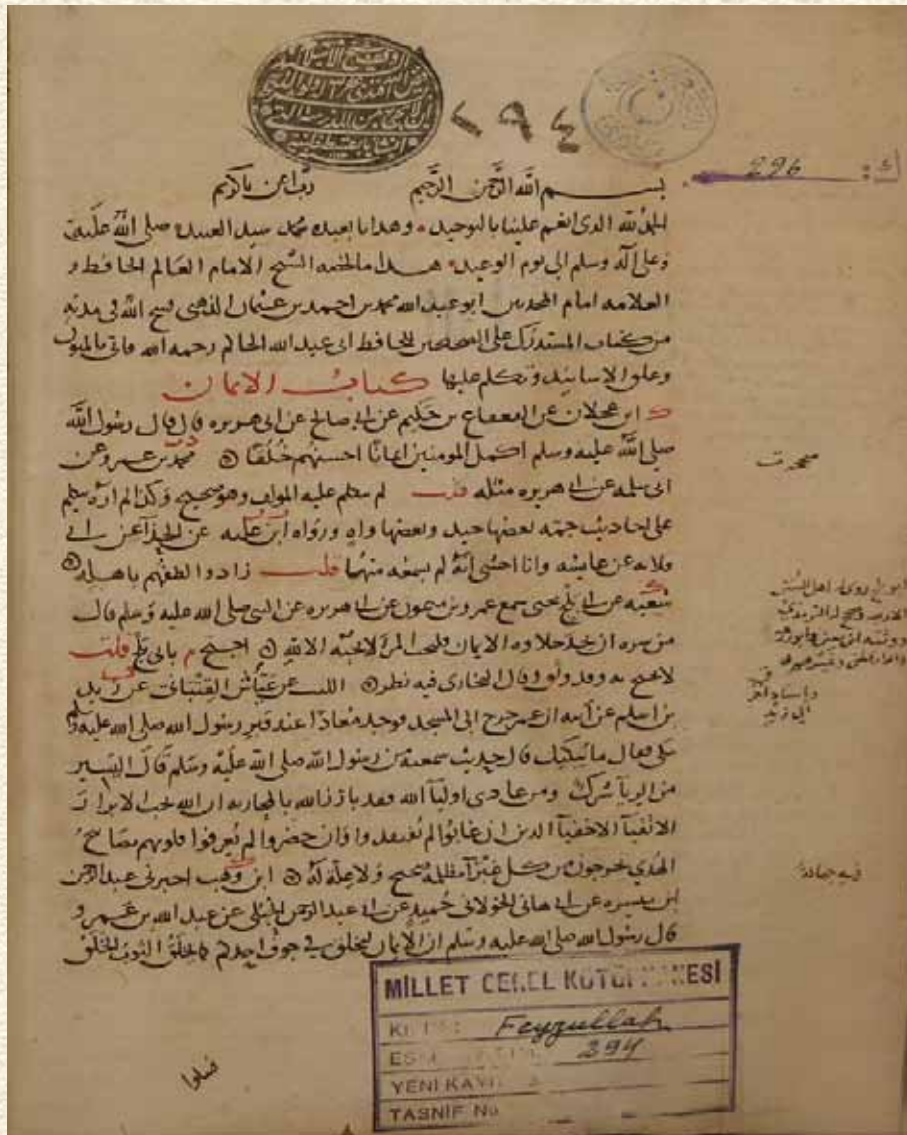 ٢٩٤
296
بسم الله الرحمن الرحيم رب اعن يا كريم
الحمد لله الذي انعم علينا بالتوحيد وهدانا بعبده محمد سيد العبيد صلى الله عليه
وعلى آله وسلم الى يوم الوعيد هذا ما لخصه الشيخ الامام العالم الحافظ
العلامه امام المحدثين ابو عبد الله محمد بن احمد بن عثمان الذهبي فسح الله في مدته
من كتاب المستدرك على الصحيحين للحافظ ابي عبد الله الحاكم رحمه الله فاتى بالمتون
وعلق الاسانيد وتكلم عليها كتاب الايمان
ابن عجلان عن القعقاع بن حكيم عن ابي صالح عن ابي هريره قال قال رسول الله
صلى الله عليه وسلم اكمل المومنين ايمانا احسنهم خلقا محمد بن عمرو عن
ابي سلمه عن ابي هريره مثله قلت لم يتكلم عليه المولف وهو صحيح وكذا لم اره يتكلم
على احاديث جمه بعضها جيد وبعضها واه ورواه ابن عليه عن الحذآ عن ابي
قلابه عن عايشه وانا اخشى انه لم يسمعه منها قلت زادوا الطفهم باهله
شعبه عن ابي بلج يحيى سمع عمرو بن ميمون عن ابي هريره عن النبي صلى الله عليه وسلم قال
من سره ان يجد حلاوه الايمان فليحب المرء لا يحبه الا لله احتج م بابي بلج قلت
لا يحتج به وقد وثق وقال البخاري فيه نظر الليث عن عياش القتباني عن زيد
بن اسلم عن ابيه ان عمر خرج الى المسجد فوجد معاذا عند قبر رسول الله صلى الله عليه وسلم
يبكي فقال ما يبكيك قال حديث سمعته من رسول الله صلى الله عليه وسلم قال اليسير
من الريآ شرك ومن عادى اوليآ الله فقد بارز الله بالمحاربه ان الله يحب الابرار
الاتقيآ الاخفيآ الذين ان غابوا لم يفتقدوا وان حضروا لم يعرفوا قلوبهم مصابيح
الهدى يخرجون من كل غبرآ مظلمه صحيح ولا علة له ابن وهب اخبرني عبد الرحمن
ابن ميسره عن ابي هاني الخولاني حميد عن ابي عبد الرحمن الحبلي عن عبد الله بن عمرو
قال رسول الله صلى الله عليه وسلم ان الايمان ليخلق في جوف احدكم كما يخلق الثوب الخلق
فسلوا
MİLLET GENEL KÜTÜPHANESİ
Feyzullah
294
YENİ KAYIT
TASNİF No.